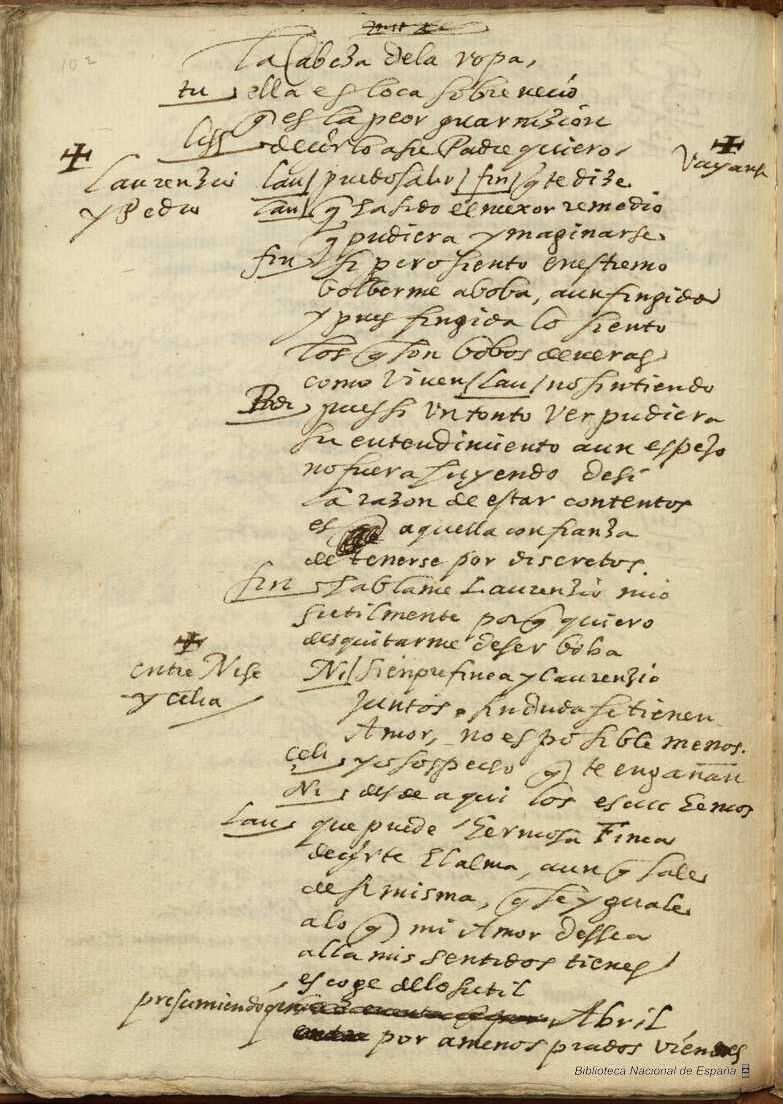 102
la Cabeza dela ropa,
tu ella es loca sobre necio
q es la peor guarnizion
liss decirlo a su Padre quiero
Vayanse
Laurenzio y Pedro
lau puedo saber fin q te dize
lau q ha sido el mexor remedio
q pudiera ymaginarse
fin si pero siento en estremo
bolberme a boba, aun fingido
y pues fingida lo siento
los q son bobos de veras
como viven lau no sintiendo
Pedr pues si un tonto ver pudiera
su entendimiento a un espejo
no fuera huyendo de si
la razon de estar contentos
es aquella confianza
de tenerse por discretos.
fin hablame Laurenzio mio
sutilmente porq quiero
desquitarme de ser boba
entre Nise y Celia
Ni sienpre finea y laurenzio
juntos. sin duda se tienen
Amor, no es posible menos.
celi yo sospecho q te engañan
Ni desde aqui los escuchemos
lau que puede hermosa Finea
decirte el alma, aunq sale
de si misma, q se yguale
a lo q mi Amor dessea
alla mis sentidos tienes
escoge de lo sutil
presumiendo q Abril
por amenos prados vienes
Biblioteca Nacional de España